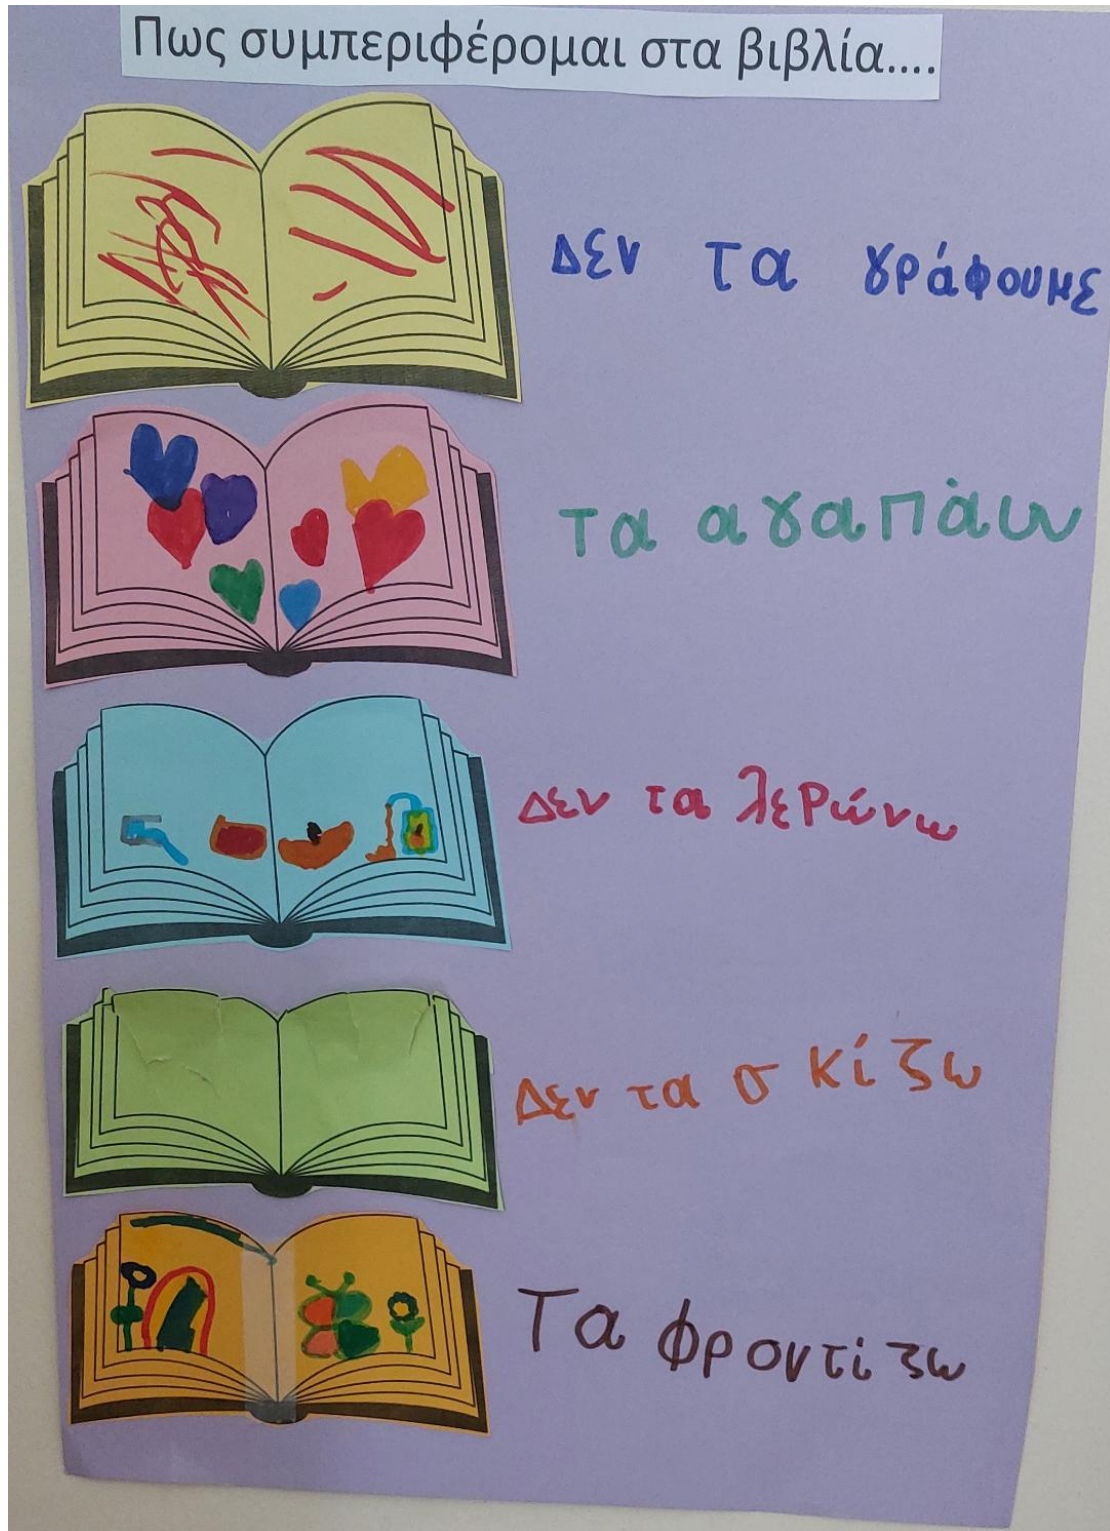 Πως συμπεριφέρομαι στα βιβλία....
Δεν τα γράφουμε
Τα αγαπάω
Δεν τα λερώνω
Δεν τα σκίζω
Τα φροντίζω